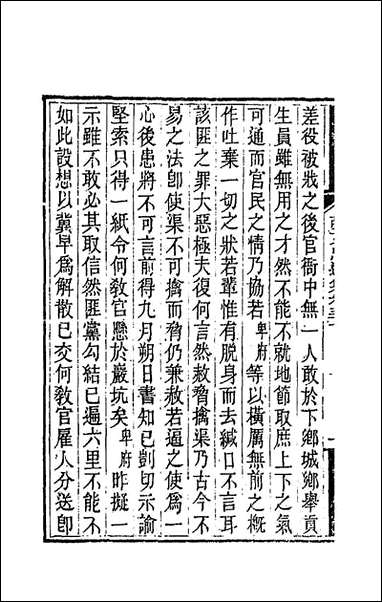 差役被戕之後官衙中無一人敢於下鄉城鄉舉貢
生員雖無用之才然不能不就地節取庶上下之氣
可通而官民之情乃協若卑府等以橫厲無前之概
作吐棄一切之狀若輩惟有脫身而去緘口不言耳
該匪之罪大惡極夫復何言然赦脅擒渠乃古今不
易之法卽使渠不可擒而脅仍兼赦若逼之使爲一
心後患將不可言前得九月朔日書知已剴切示諭
堅索只得一紙令何教官懸於巖坑矣卑府昨擬一
示雖不敢必其取信然匪黨勾結已遍六里不能不
如此設想以冀早爲解散已交何教官雇人分送卽